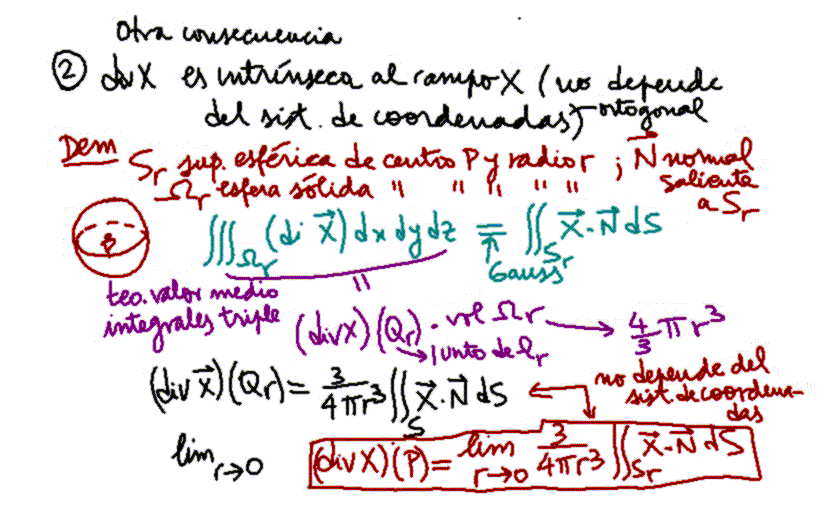 Otra consecuencia
② div X es intrínseca al campo X (no depende
del sist. de coordenadas) ortogonal
Dem S_r sup. esférica de centro P y radio r ; N⃗ normal
saliente
a S_r
Ω_r esfera sólida " " " " "
P
∭_Ω_r (di X⃗) dx dy dz = ∬_S_r X⃗·N⃗ dS
Gauss
teo. valor medio
integrales triple
"
(div X)(Q_r) · vol Ω_r → 4/3 π r³
punto de Ω_r
(div X⃗)(Q_r) = 3/(4πr³) ∬_S X⃗·N⃗ dS
no depende del
sist. de coordena-
das
lim r→0
(div X)(P) = lim r→0 3/(4πr³) ∬_S_r X⃗·N⃗ dS